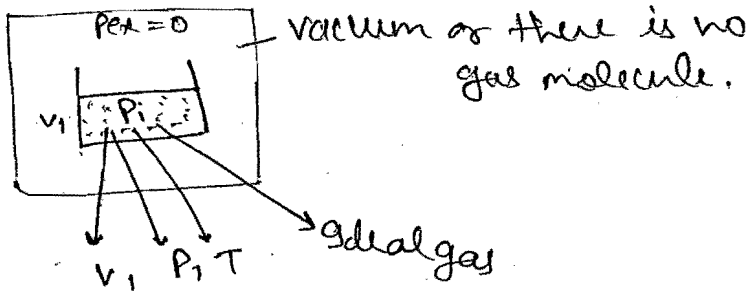 Pex = 0
vaccum or there is no
gas molecule.
V1 Pi
V1 P1 T
Ideal gas